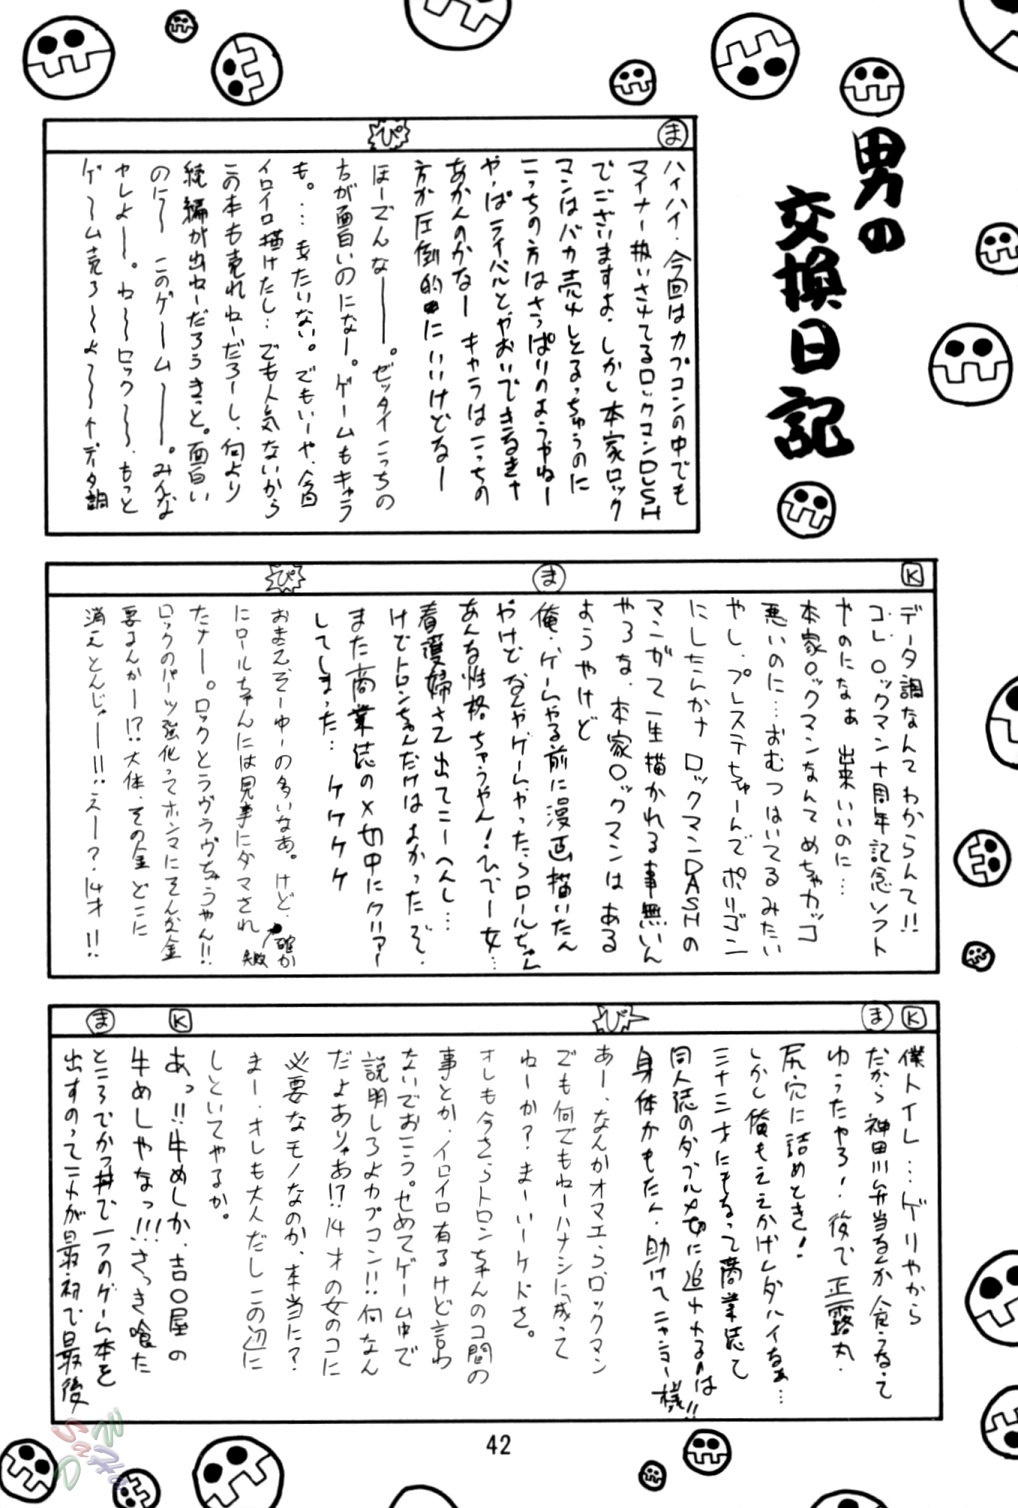 男の
交換日記
ま
ハイハイ、今回はカプコンの中でも
マイナー扱いされてるロックマンDASH
でございますよ。しかし本家ロック
マンはバカ売れしとるっちゅうのに
こっちの方はさっぱりのようやねー
やっぱライバルとやおいできるさ
あかんのかなー キャラはこっちの
方が圧倒的にいいけどなー
ぴ
ほーでんなー。ゼッタイこっちの
ちが面白いのになー。ゲームもキャラ
も。…もったいない。でもいーや、今回
イロイロ描けたし…でも人気ないから
この本も売れねーだろーし、何より
続編が出ねーだろうきっと。面白い
のに〜 このゲーム——。みんな
ヤレよー。ね〜ロック〜、もっと
ゲ〜ム売ろ〜よ〜〜↑データ調
K
データ調なんてわからんて!!
コレ、ロックマン十周年記念ソフト
やのになぁ 出来いいのに…
本家ロックマンなんてめちゃカッコ
悪いのに…おむつはいてるみたい
やし、プレステちゃーんでポリゴン
にしたんかナ ロックマンDASHの
マンガって一生描かれる事無いん
やろな、本家ロックマンはある
ようやけど
ま
俺、ゲームやる前に漫画描いたん
やけど なんやゲームやったらロールちゃん
あんな性格ちゃうやん!ひでー女…
看護婦さえ出てこーへんし…
けどトロンちゃんだけはよかったぞ。
また商業誌の〆切中にクリアー
してしまった… ケケケケ
ぴ
おまえそーゆーの多いなあ。けど、確か
にロールちゃんには見事にダマされ
たナー。ロックとラヴラヴちゃうやん!!
ロックのパーツ強化ってホンマにそんな金
要るんかー!?大体、その金どこに
消えとんじゃー!!…えー?14才!!
K
僕トイレ…ゲリやから
ま
だから神田川弁当なんか食うなって
ゆったやろ!後で正露丸、
尻穴に詰めとき!
しかし俺もええかげんダハイなぁ…
三十三才にもなって商業誌て
同人誌のダブル〆切に追われるのは!!
身体がもたん、助けてニャンコー様
ぴ
あー、なんかオマエら、ロックマン
でも何でもねーハナシに成って
ねーか?まーいーケドさ。
オレも今さらトロンちゃんのコ間の
事とか、イロイロ有るけど言わ
ないでおこう。せめてゲーム中で
説明しろよカプコン!!何なん
だよありゃあ!?14才の女のコに
必要なモノなのか、本当に?
まー、オレも大人だしこの辺に
しといてやるか。
K
あっ!!牛めしか、吉〇屋の
牛めしやなっ!!!さっき喰た
ま
ところでかつ丼で一つのゲーム本を
出すのってこれが最初で最後
42